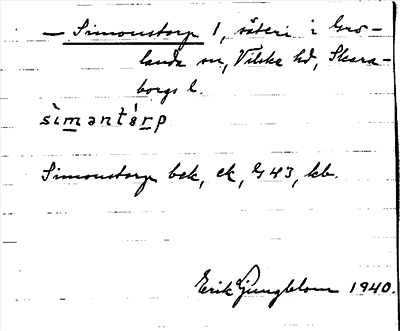 — Simonstorp 1, säteri i Gro-
landa sn, Vilske hd, Skara-
borgs l.
sìməntèrp
Simonstorp bek, ek, G 43, kb.
Erik Ljungblom 1940.